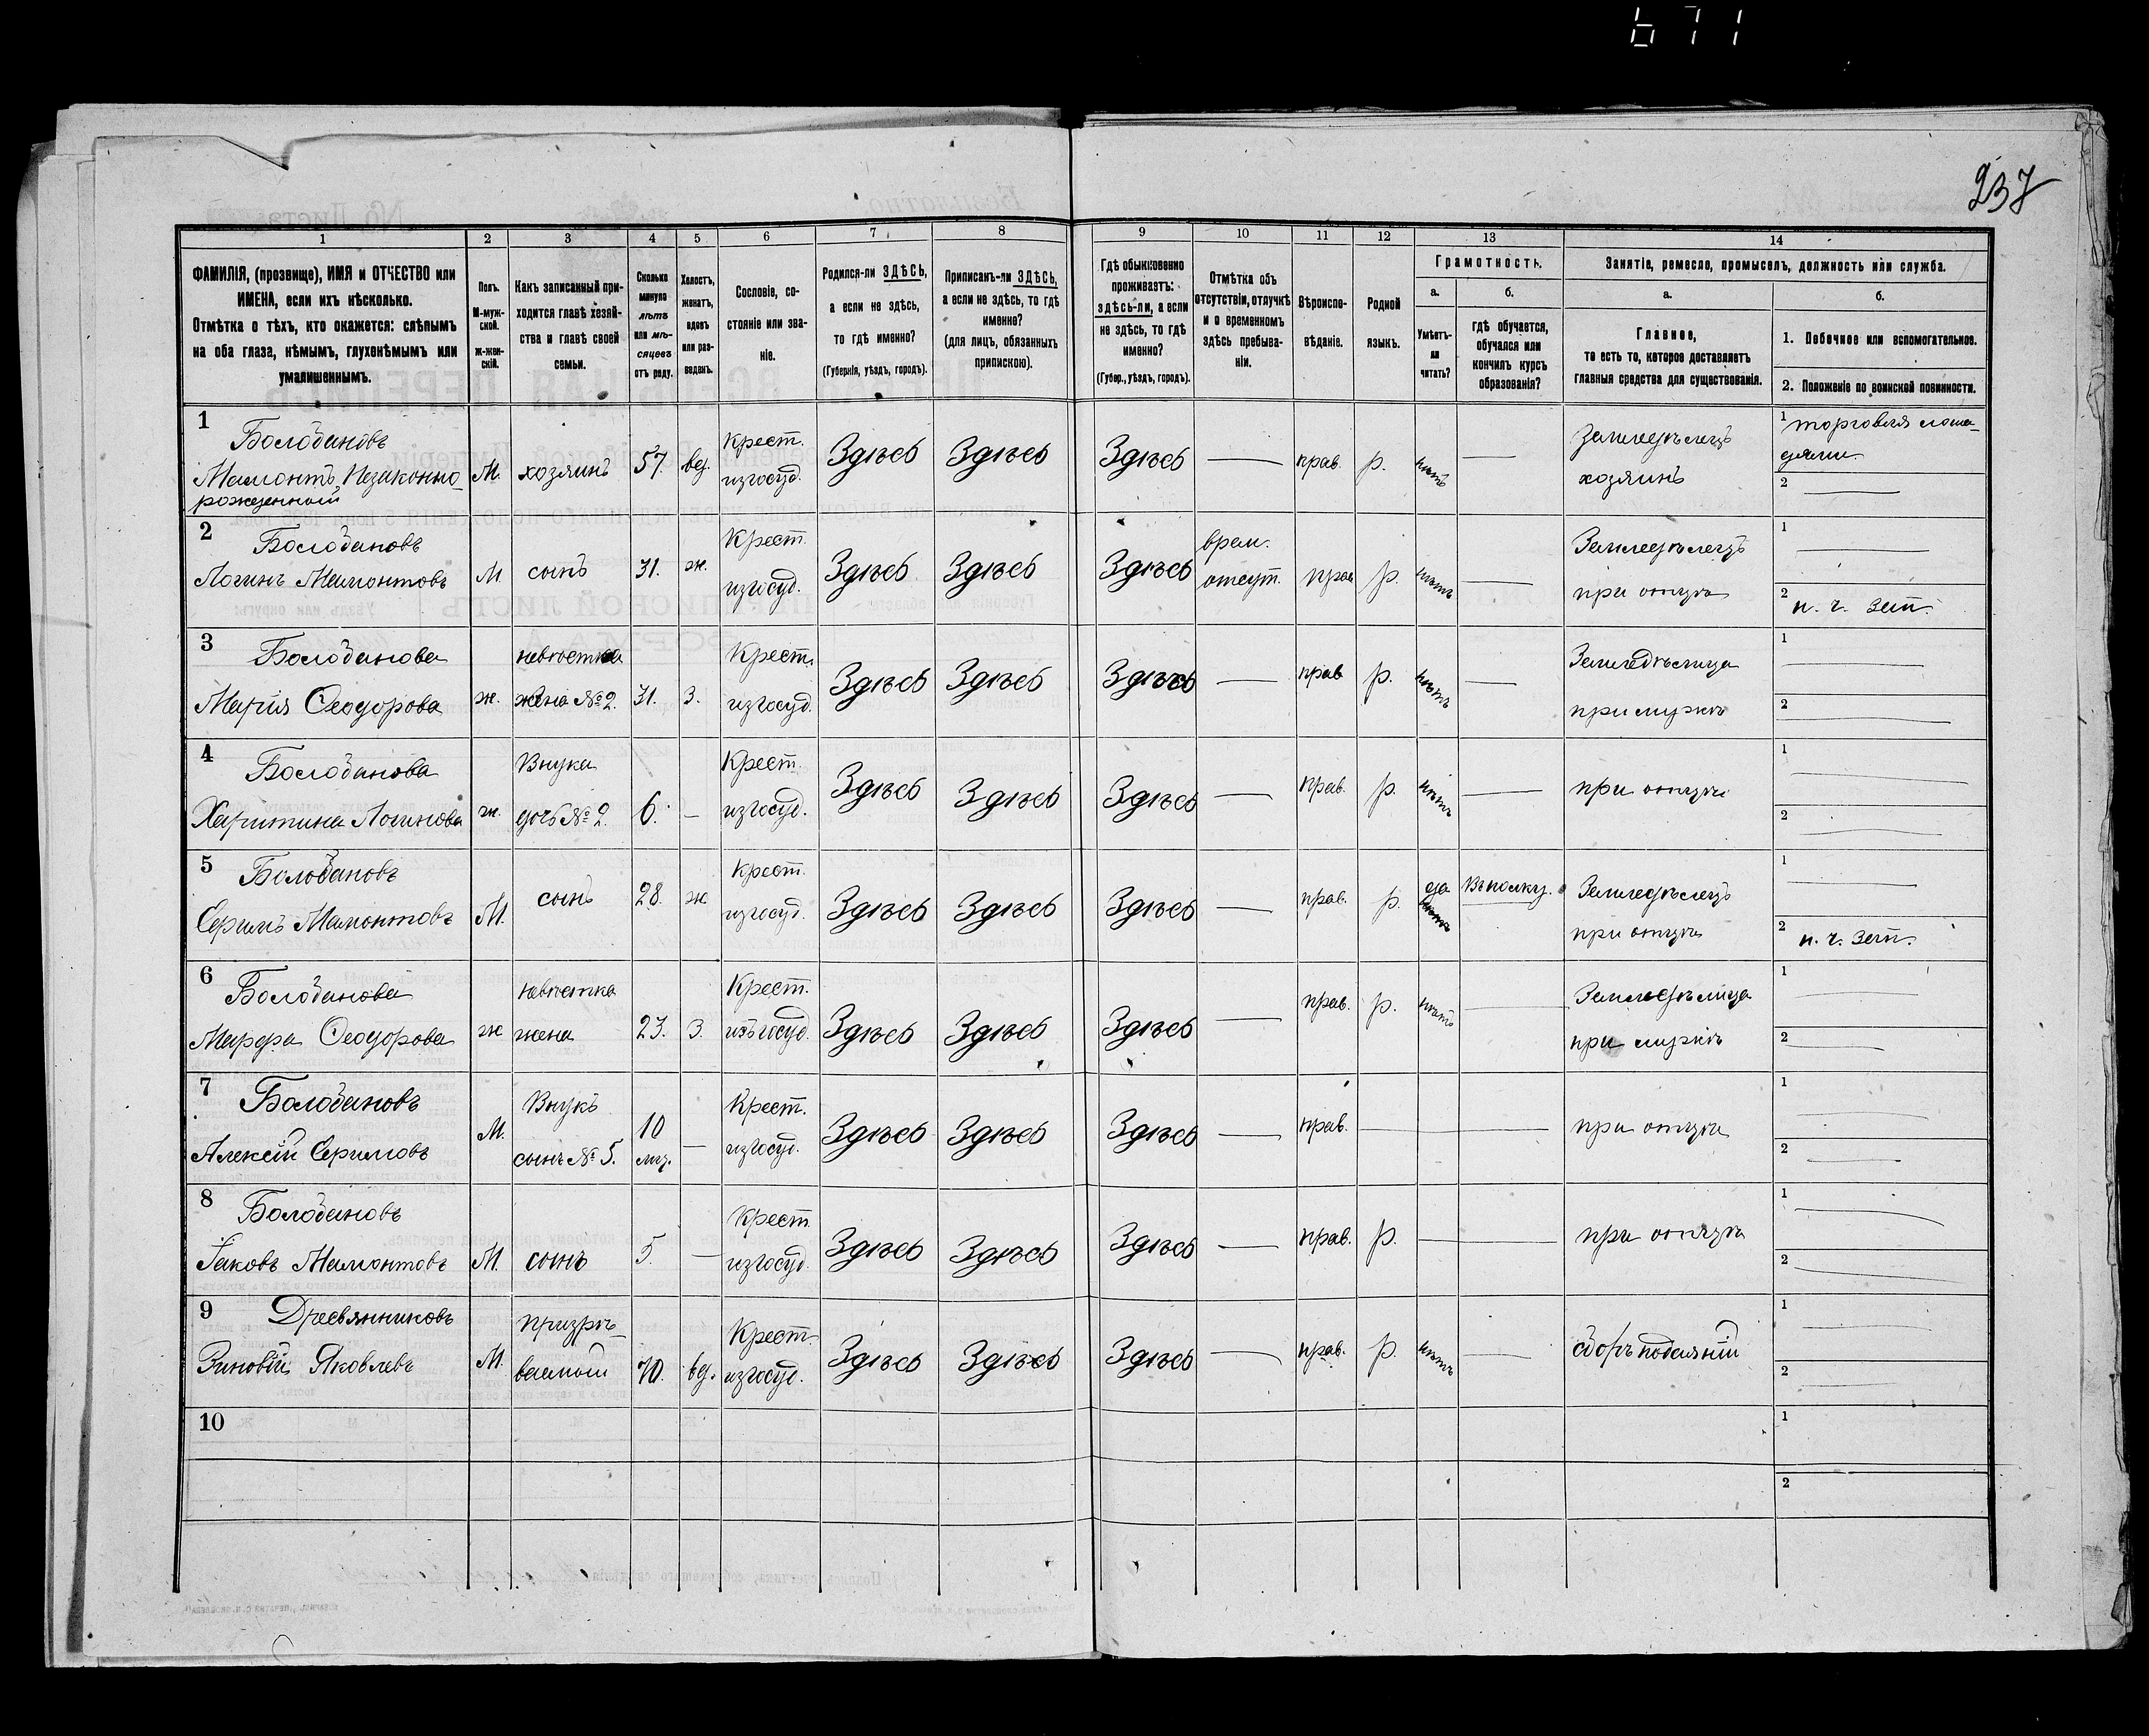 671
237
1 2 3 4 5 6 7 8 9 10 11 12 13 14
ФАМИЛІЯ, (прозвище), ИМЯ и ОТЧЕСТВО или
ИМЕНА, если ихъ нѣсколько.
Отмѣтка о тѣхъ, кто окажется: слѣпымъ
на оба глаза, нѣмымъ, глухонѣмымъ или
умалишеннымъ.
Полъ.
М-муж-
ской.
ж-жен-
скій.
Какъ записанный при-
ходится главѣ хозяй-
ства и главѣ своей
семьи.
Сколько
минуло
лѣтъ
или мѣ-
сяцевъ
отъ роду.
Холостъ,
женатъ,
вдовъ
или раз-
веденъ.
Сословіе, со-
стояніе или зва-
ніе.
Родился-ли ЗДѢСЬ,
а если не здѣсь,
то гдѣ именно?
(Губернія, уѣздъ, городъ).
Приписанъ-ли ЗДѢСЬ,
а если не здѣсь, то гдѣ
именно?
(для лицъ, обязанныхъ
припискою).
Гдѣ обыкновенно
проживаетъ:
здѣсь-ли, а если
не здѣсь, то гдѣ
именно?
(Губер., уѣздъ, городъ).
Отмѣтка объ
отсутствіи, отлучкѣ
и о временномъ
здѣсь пребыва-
ніи.
Вѣроиспо-
вѣданіе.
Родной
языкъ.
Грамотность.
а.
Умѣетъ-
ли
читать?
б.
гдѣ обучается,
обучался или
кончилъ курсъ
образованія?
Занятіе, ремесло, промыселъ, должность или служба.
а.
Главное,
то есть то, которое доставляетъ
главныя средства для существованія.
б.
1. Побочное или вспомогательное.
2. Положеніе по воинской повинности.
1 Болобановъ крест. Земледѣлецъ 1 торговля лоша-
Мамонтъ Незаконно- М. хозяинъ 57. вд. изгосуд. Здѣсь Здѣсь Здѣсь — прав. р. нѣтъ — хозяинъ дями.
рожденный 2 —
2 Болобановъ Крест. врем. Земледѣлецъ 1 —
Логинъ Мамонтовъ М сынъ 31. ж. изгосуд. Здѣсь Здѣсь Здѣсь отсут. прав р. нѣтъ — при отцѣ 2 н. ч. зап.
3 Болобанова невѣстка Крест. Земледѣлица 1 —
Марія Ѳеодорова ж. жена №2. 31. З. изгосуд. Здѣсь Здѣсь Здѣсь — прав р. нѣтъ — при мужѣ 2 —
4 Болобанова Внука Крест. 1 —
Харитина Логинова ж. дочь №2. 6. — изгосуд. Здѣсь Здѣсь Здѣсь — прав. р. нѣтъ — при отцѣ 2 —
5 Болобановъ Крест. да Въ полку. Земледѣлецъ 1 —
Ефимъ Мамонтовъ М. сынъ 28. ж изгосуд. Здѣсь Здѣсь Здѣсь — прав. р. при отцѣ 2 н. ч. зап.
6 Болобанова невѣстка Крест. Земледѣлица 1 —
Марфа Ѳеодорова ж жена 23. З. изъ госуд. Здѣсь Здѣсь Здѣсь — прав. р. нѣтъ — при мужѣ 2 —
7 Болобановъ Внукъ 10 Крест. 1 —
Алексѣй Ефимовъ М. сынъ №5. мц. — изгосуд. Здѣсь Здѣсь Здѣсь — прав. — при отцѣ 2 —
8 Болобановъ Крест. 1 —
Іаковъ Мамонтовъ М. сынъ 5. — изгосуд. Здѣсь Здѣсь Здѣсь — прав. р. — при отцѣ 2 —
9 Древянниковъ призрѣ- Крест. 1 —
Зиновій Яковлевъ М. ваемый 70. вд. изгосуд. Здѣсь Здѣсь Здѣсь — прав. р. нѣтъ — сборъ подаяній 2 —
10 1
2